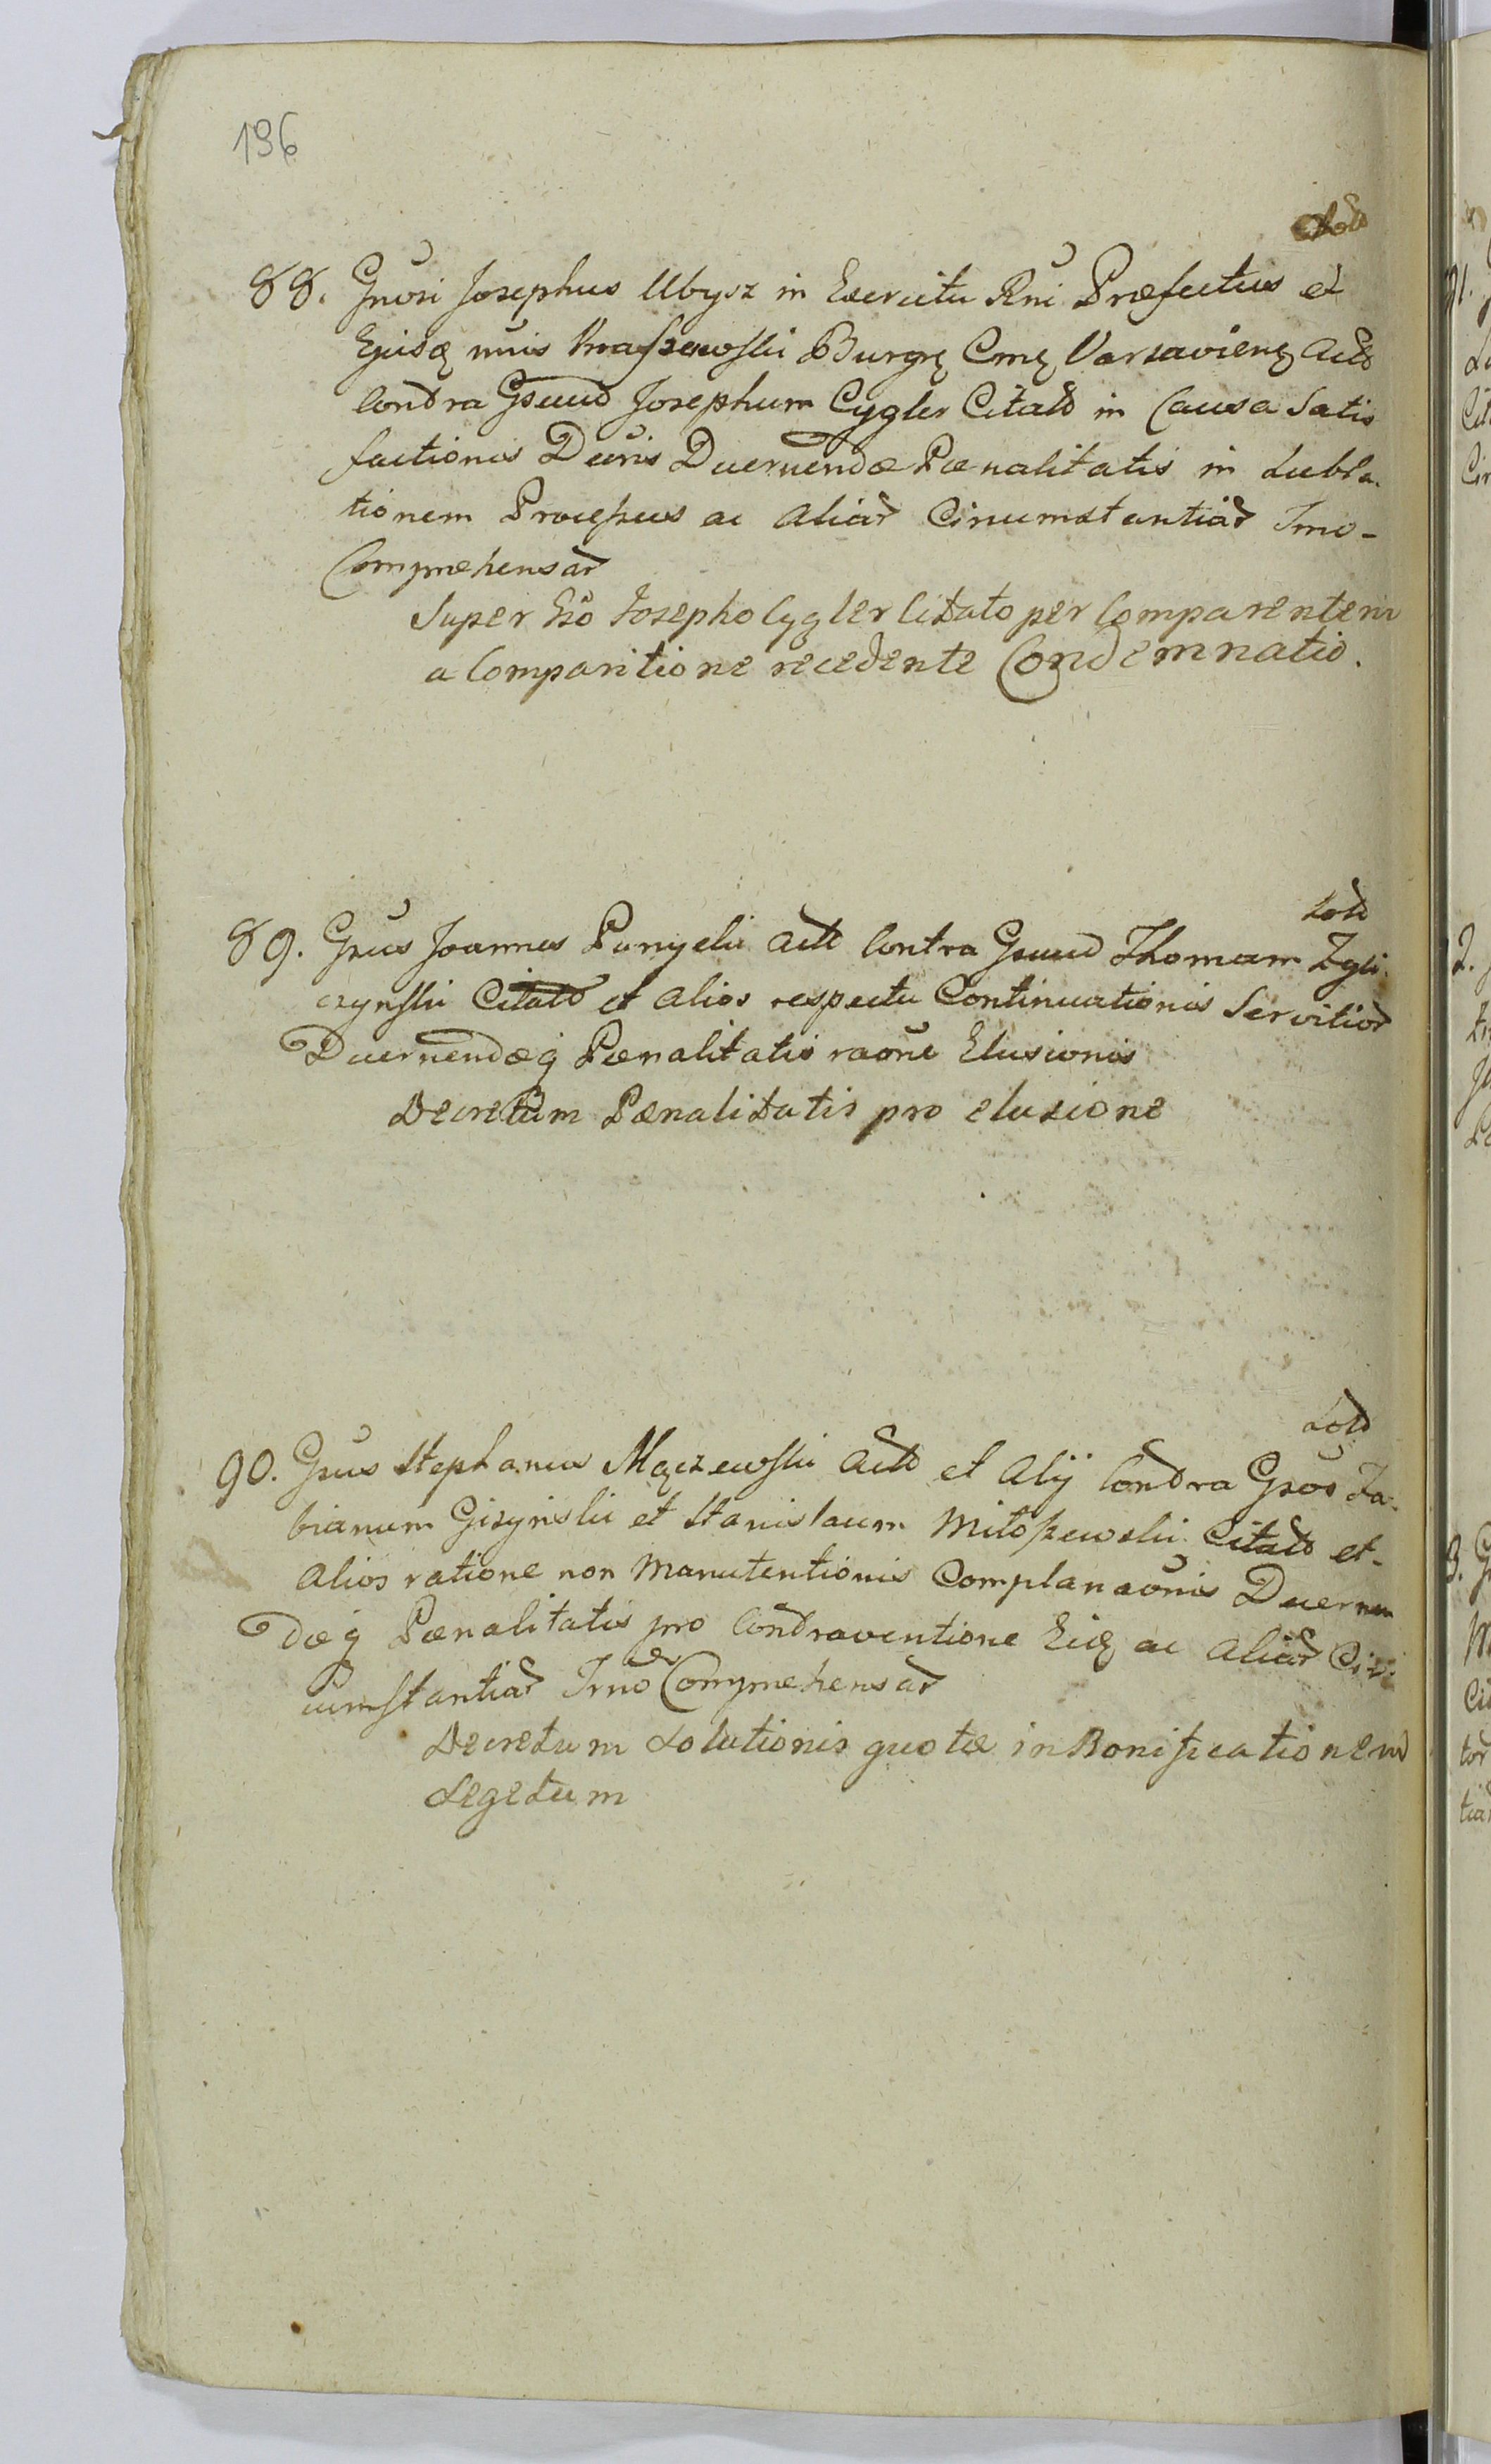 196
Sold
88. Gnosi Josephus Ubysz in Exercitu Rni Præfectus et
Ejusq nnis Kraszewski Burgrę Cmę Varsavienę Actō
Contra Gsum Josephum Cygler Citatō in Causa Satis
factionis Decris Decernendæ Pœnalitatis in subla-
tionem Processus ac Aliar Circumstantiar Tmo-
Comprehensar
Super Gso Josepho Cygler Citato per Comparentem
a Comparitione recedente Condemnatio.
Sold
89. Gsus Joannes Pan Actt Contra Gsum Thomam Zgli-
czynski Citatō et Alios respectu Continuationis Servitior
Decernendæq Pœnalitatis raōne Elusionis
Decretum Pœnalitatis pro elusione
Sold
90. Gsus Stephanus Mączewski Actō et Alij Contra Gsos Fa-
bianum Gizynski et Stanislaum Mitoszewski Citatō et-
Alios ratione non Manutentionis Complanaōnis Decernen
dæq Pœnalitatis pro Contraventione Eiq ac Aliar Cir-
cumstantiar Tmo Comprehensar
Decretum Solutionis quotæ in Bonificationem
Segetum